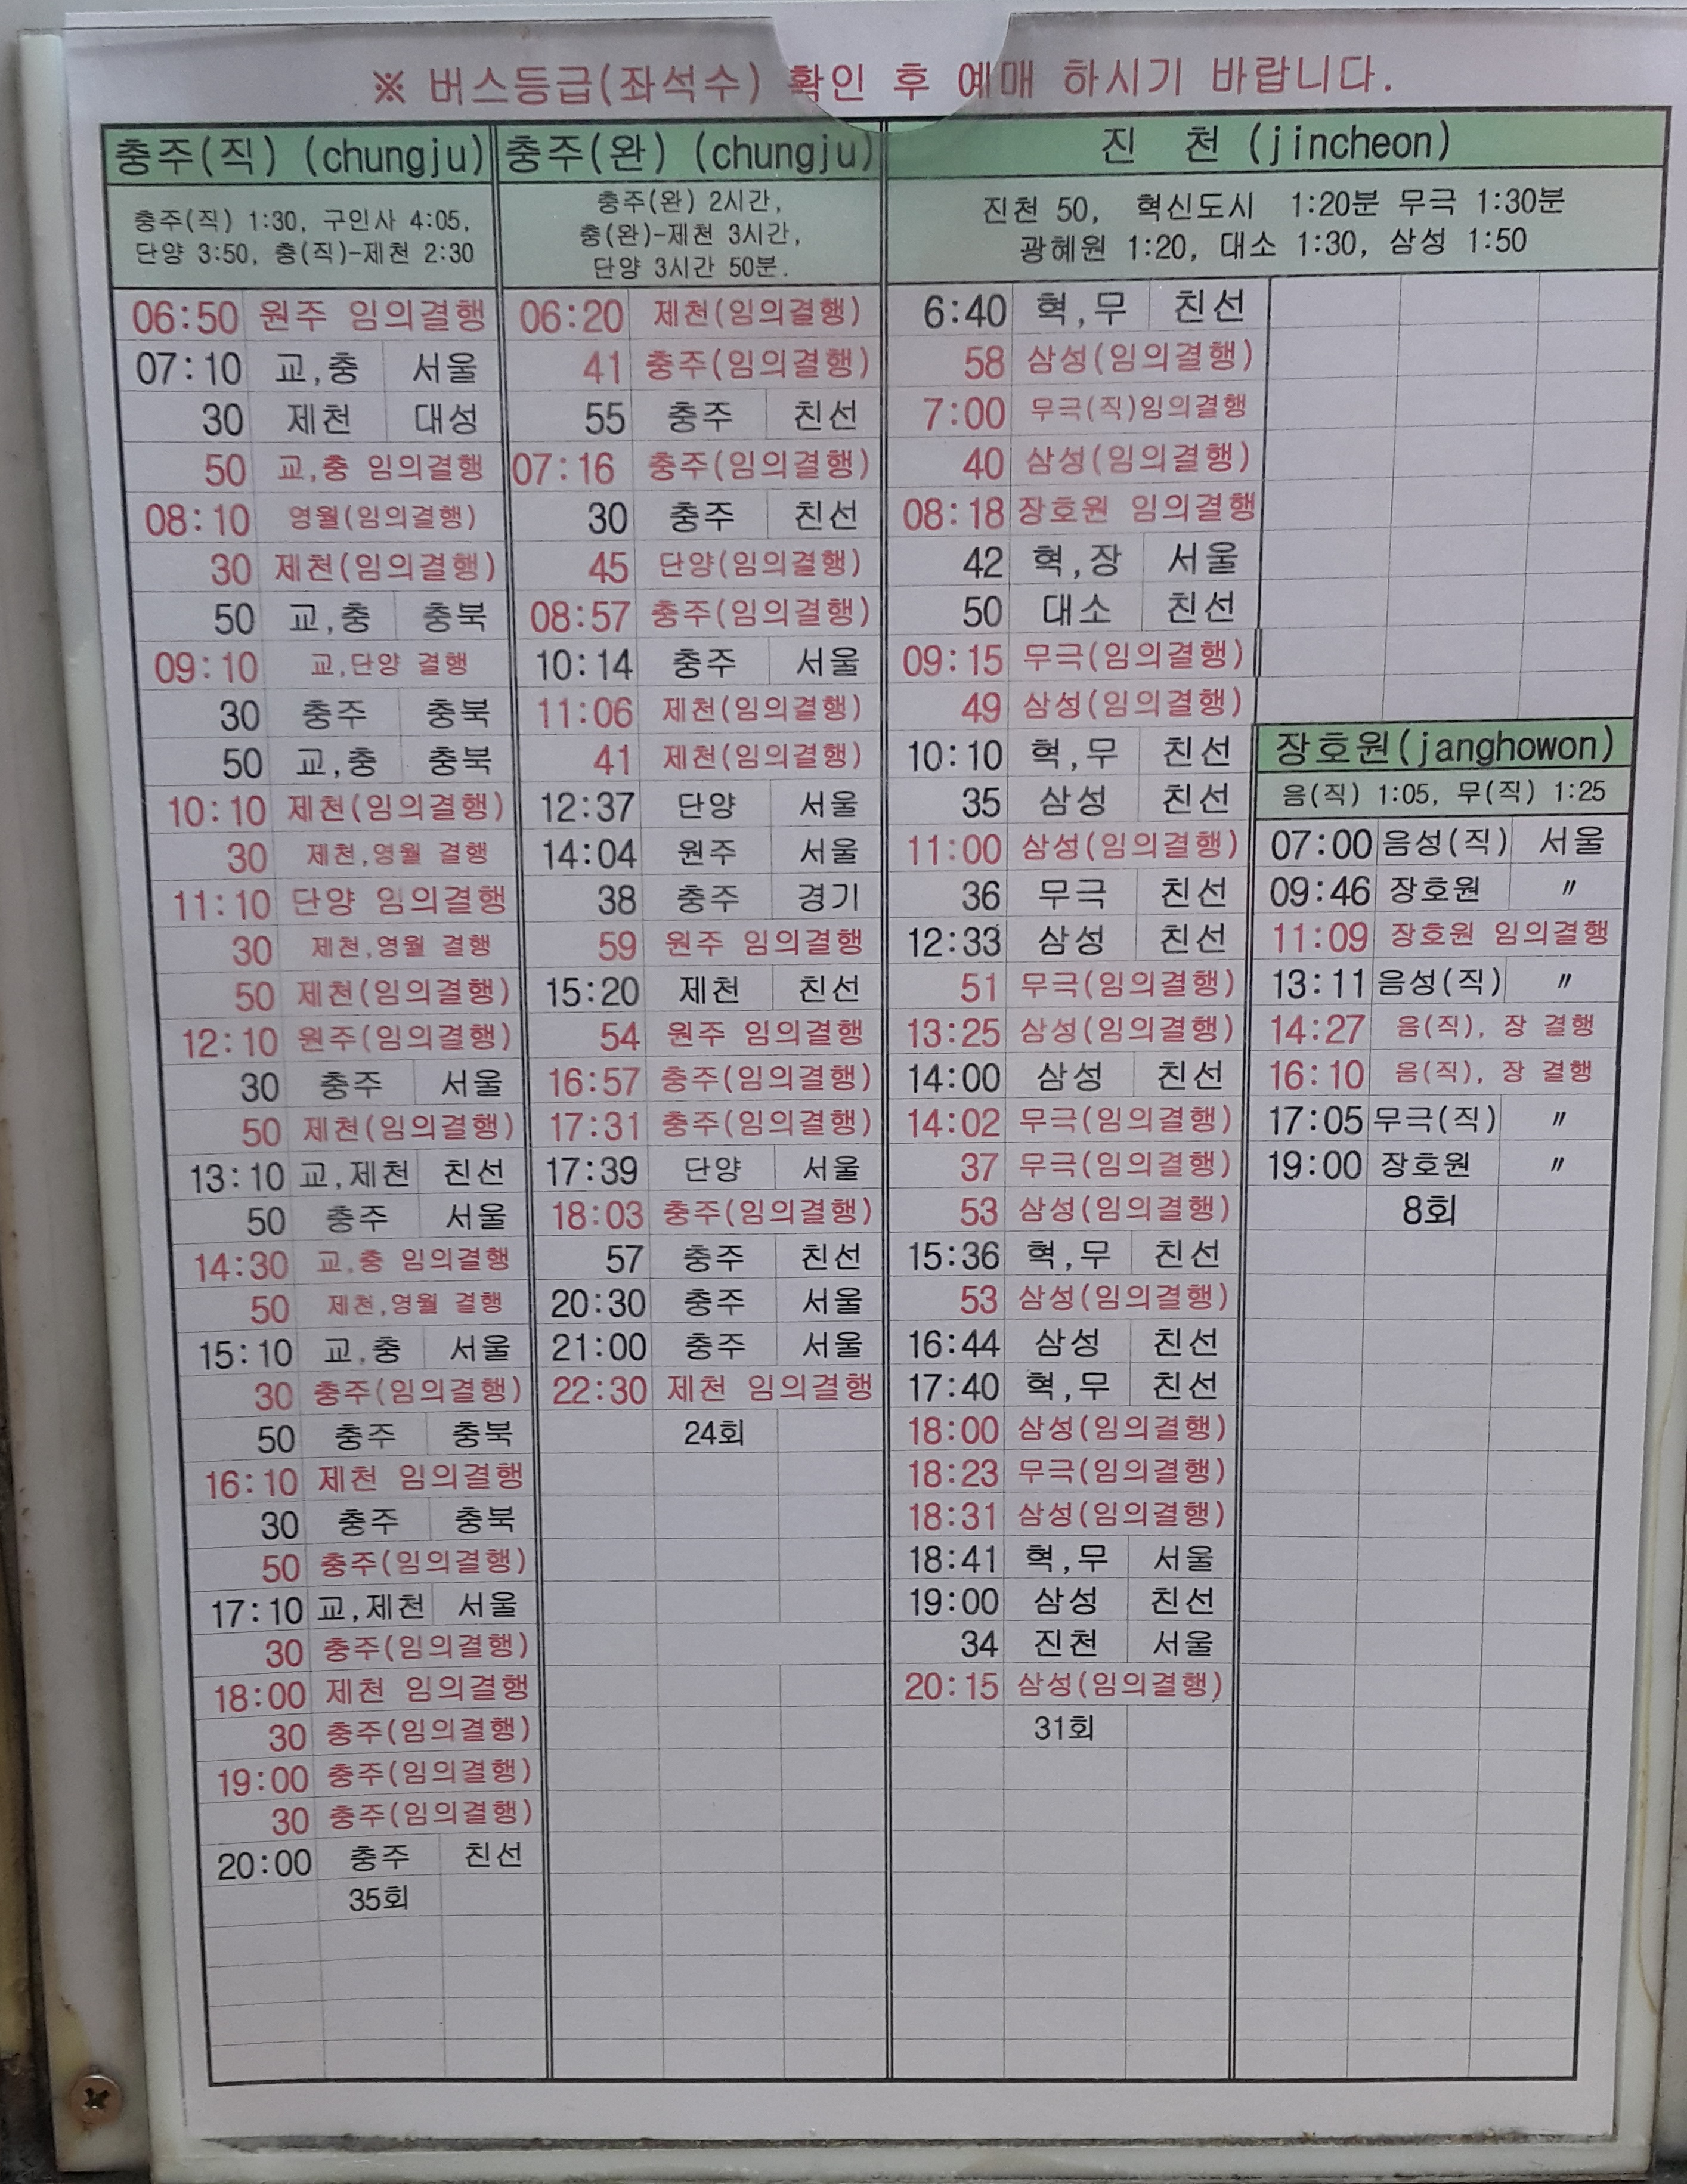 ※ 버스등급(좌석수) 확인 후 예매 하시기 바랍니다.
충주(직) (chungju)
충주(직) 1:30, 구인사 4:05,
단양 3:50, 충(직)-제천 2:30
06:50 원주 임의결행
07:10 교,충 서울
30 제천 대성
50 교,충 임의결행
08:10 영월(임의결행)
30 제천(임의결행)
50 교,충 충북
09:10 교,단양 결행
30 충주 충북
50 교,충 충북
10:10 제천(임의결행)
30 제천,영월 결행
11:10 단양 임의결행
30 제천,영월 결행
50 제천(임의결행)
12:10 원주(임의결행)
30 충주 서울
50 제천(임의결행)
13:10 교,제천 친선
50 충주 서울
14:30 교,충 임의결행
50 제천,영월 결행
15:10 교,충 서울
30 충주(임의결행)
50 충주 충북
16:10 제천 임의결행
30 충주 충북
50 충주(임의결행)
17:10 교,제천 서울
30 충주(임의결행)
18:00 제천 임의결행
30 충주(임의결행)
19:00 충주(임의결행)
30 충주(임의결행)
20:00 충주 친선
35회
충주(완) (chungju)
충주(완) 2시간,
충(완)-제천 3시간,
단양 3시간 50분.
06:20 제천(임의결행)
41 충주(임의결행)
55 충주 친선
07:16 충주(임의결행)
30 충주 친선
45 단양(임의결행)
08:57 충주(임의결행)
10:14 충주 서울
11:06 제천(임의결행)
41 제천(임의결행)
12:37 단양 서울
14:04 원주 서울
38 충주 경기
59 원주 임의결행
15:20 제천 친선
54 원주 임의결행
16:57 충주(임의결행)
17:31 충주(임의결행)
17:39 단양 서울
18:03 충주(임의결행)
57 충주 친선
20:30 충주 서울
21:00 충주 서울
22:30 제천 임의결행
24회
진 천 (jincheon)
진천 50, 혁신도시 1:20분 무극 1:30분
광혜원 1:20, 대소 1:30, 삼성 1:50
6:40 혁,무 친선
58 삼성(임의결행)
7:00 무극(직)임의결행
40 삼성(임의결행)
08:18 장호원 임의결행
42 혁,장 서울
50 대소 친선
09:15 무극(임의결행)
49 삼성(임의결행)
10:10 혁,무 친선
35 삼성 친선
11:00 삼성(임의결행)
36 무극 친선
12:33 삼성 친선
51 무극(임의결행)
13:25 삼성(임의결행)
14:00 삼성 친선
14:02 무극(임의결행)
37 무극(임의결행)
53 삼성(임의결행)
15:36 혁,무 친선
53 삼성(임의결행)
16:44 삼성 친선
17:40 혁,무 친선
18:00 삼성(임의결행)
18:23 무극(임의결행)
18:31 삼성(임의결행)
18:41 혁,무 서울
19:00 삼성 친선
34 진천 서울
20:15 삼성(임의결행)
31회
장호원(janghowon)
음(직) 1:05, 무(직) 1:25
07:00 음성(직) 서울
09:46 장호원 〃
11:09 장호원 임의결행
13:11 음성(직) 〃
14:27 음(직), 장 결행
16:10 음(직), 장 결행
17:05 무극(직) 〃
19:00 장호원 〃
8회